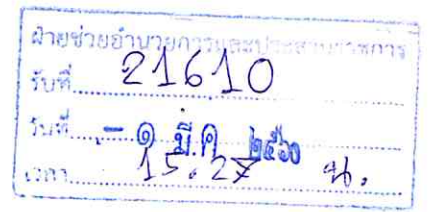 ฝ่ายช่วยอำนวยการและประสานราชการ
รับที่ 21610
วันที่ - ๑ มี.ค. ๒๕๖๐
เวลา 15.27 น.